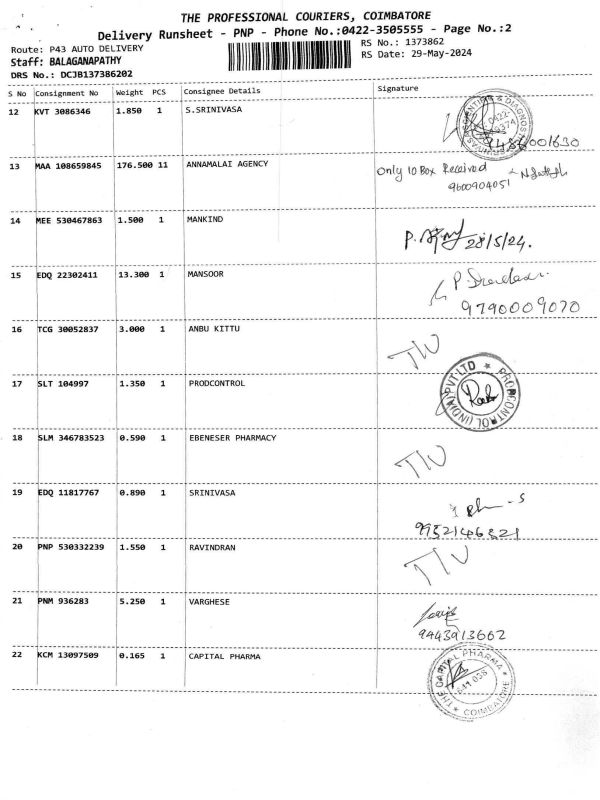 THE PROFESSIONAL COURIERS, COIMBATORE
Delivery Runsheet - PNP - Phone No.:0422-3505555 - Page No.:2
Route: P43 AUTO DELIVERY
RS No.: 1373862
Staff: BALAGANAPATHY
RS Date: 29-May-2024
DRS No.: DCJB137386202
S No Consignment No Weight PCS Consignee Details Signature
12 KVT 3086346 1.850 1 S.SRINIVASA
13 MAA 108659845 176.500 11 ANNAMALAI AGENCY Only 10 Box Received
9600904051
14 MEE 530467863 1.500 1 MANKIND 28/5/24.
15 EDQ 22302411 13.300 1 MANSOOR
9790009070
16 TCG 30052837 3.000 1 ANBU KITTU
17 SLT 104997 1.350 1 PRODCONTROL PRODCONTROL (INDIA) PVT LTD
18 SLM 346783523 0.590 1 EBENESER PHARMACY
19 EDQ 11817767 0.890 1 SRINIVASA
9952146321
20 PNP 530332239 1.550 1 RAVINDRAN
21 PNM 936283 5.250 1 VARGHESE
9443913662
22 KCM 13097509 0.165 1 CAPITAL PHARMA THE CAPITAL PHARMA COIMBATORE